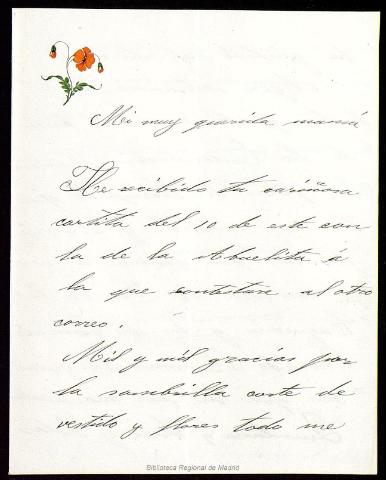 Mi muy querida mamá
He recibido tu cariñosa
cartita del 10 de este con
la de la Abuelita á
la que contestare al otro
correo.
Mil y mil gracias por
la sombrilla corte de
vestido y flores todo me
Biblioteca Regional de Madrid